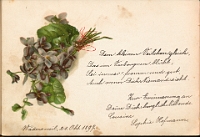 Dem kleinen Veilchen gleich,
Das im Verborgnen blüht,
Sei immer fromm und gut,
Auch wenn Dich Niemand sieht.
Zur Erinnerung an
Deine Dich herzlich liebende
Cousine
Sophie Hofmann